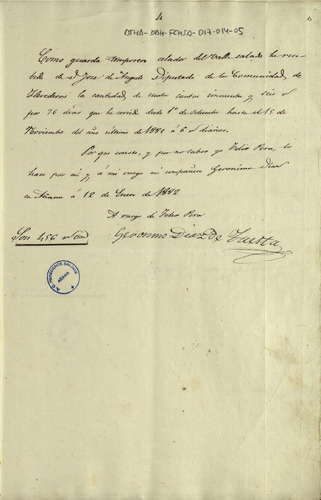 4
ATHA-DAH-FCHSA-017-014-05
Como guarda temporero celador del Valle salado he reci-
bido de D. Jose de Angulo Diputado de la Comunidad de
Herederos la cantidad de cuatro cientos cincuenta y seis r.s
por 76 dias que he servido desde 1º de Setiembre hasta el 15 de
Noviembre del año último de 1881 á 6 r.s diarios.
Por que conste, y por no saber yo Felix Pera lo
hace por mi y á mi ruego mi compañero Geronimo Diaz
en Añana á 12 de Enero de 1882
A ruego de Felix Pera
Son 456 r.s
Geronimo Diaz de Tuesta
SALINAS
AÑANA